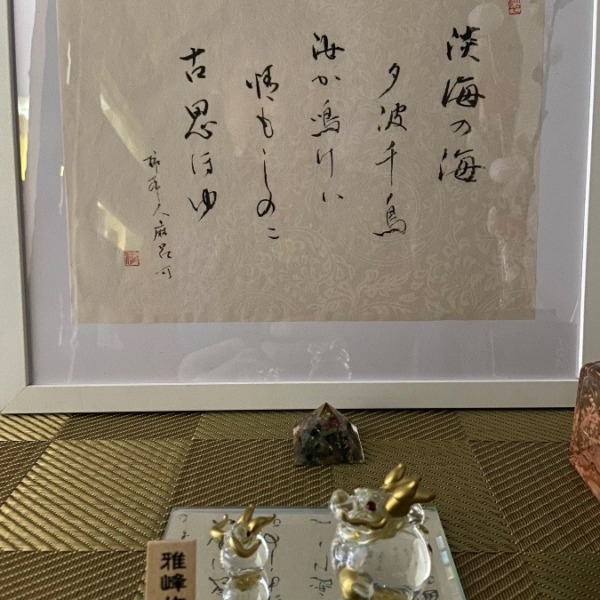 淡海の海
夕波千鳥
汝が鳴けは
情もしのに
古思ほゆ
柿本人麻呂
雅峰